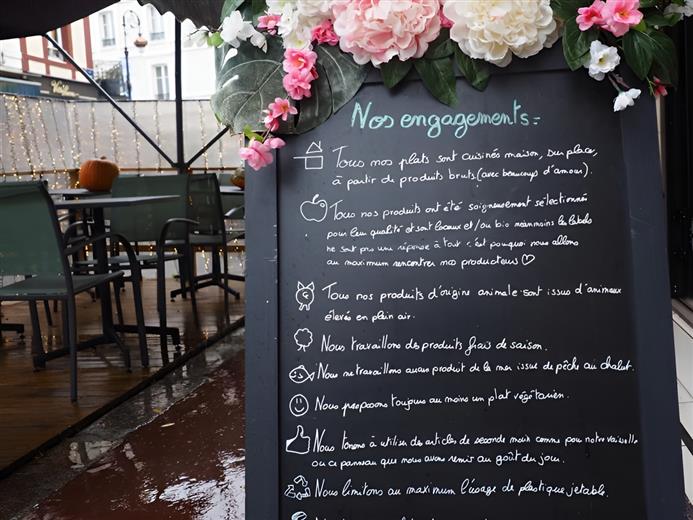 Nos engagements:
Tous nos plats sont cuisinés maison, sur place,
à partir de produits bruts (avec beaucoup d'amour).
Tous nos produits ont été soigneusement sélectionné
pour leur qualité et sont locaux et/ou bio néanmoins les labels
ne sont pas une réponse à tout c'est pourquoi nous allons
au maximum rencontrer nos producteurs ♡
Tous nos produits d'origine animale sont issus d'animaux
élevés en plein air.
Nous travaillons des produits frais de saison.
Nous ne travaillons aucun produit de la mer issue de pêche au chalut.
Nous proposons toujours au moins un plat végétarien.
Nous tenons à utiliser des articles de seconde main comme pour notre vaisselle
ou ce panneau que nous avons remis au goût du jour.
Nous limitons au maximum l'usage de plastique jetable.